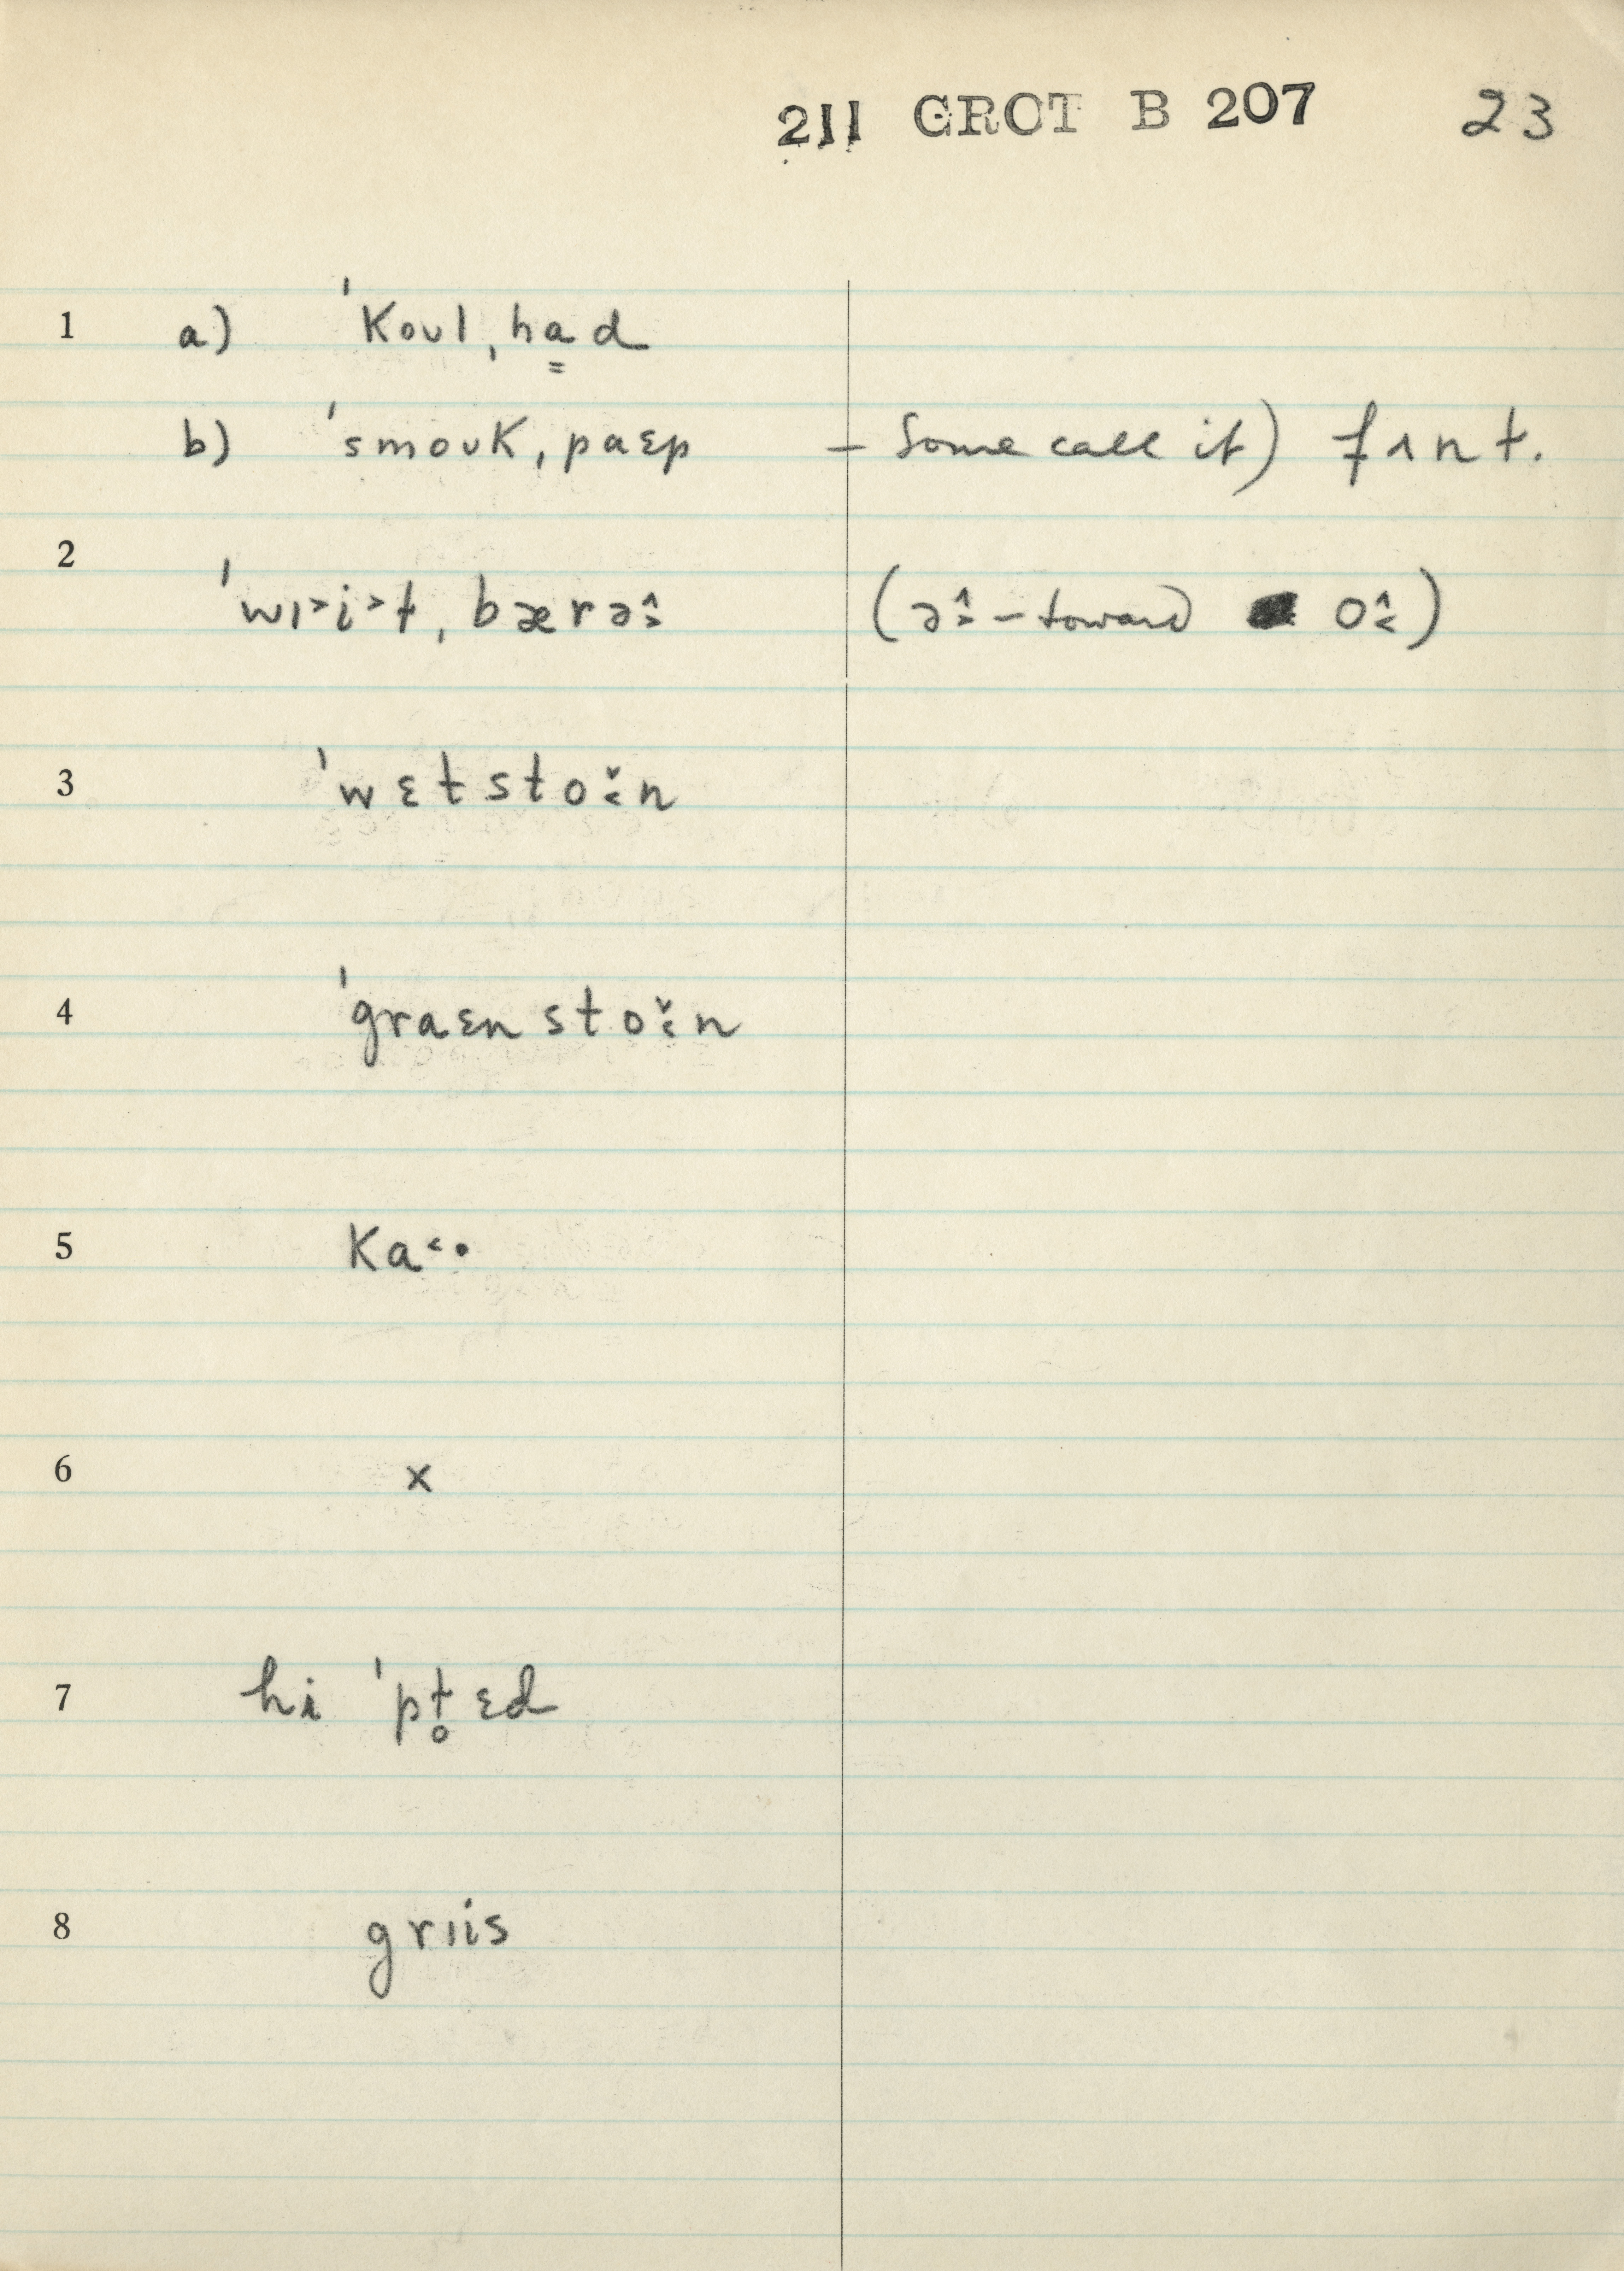 211 GROT B 207 23
1 a) ˈkoʊlˌha̳d
b) ˈsmoʊkˌpaɛp – Some call it) fʌnt.
2 ˈwɪ˃i˃tˌbærə̂ː (ə̂ː – toward ô˰)
3 ˈwɛtsto˯n
4 ˈgraɛnsto˯n
5 ka˂·
6 x
7 hi ˈpt̥ɛd
8 grɪis